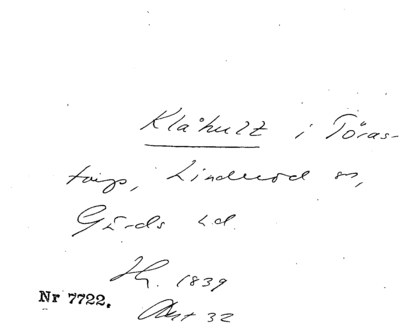 Klåhult i Töras-
torp, Linderöd sn,
Gärds hd.
Hf. 1839
Nr 7722.
Akt 32